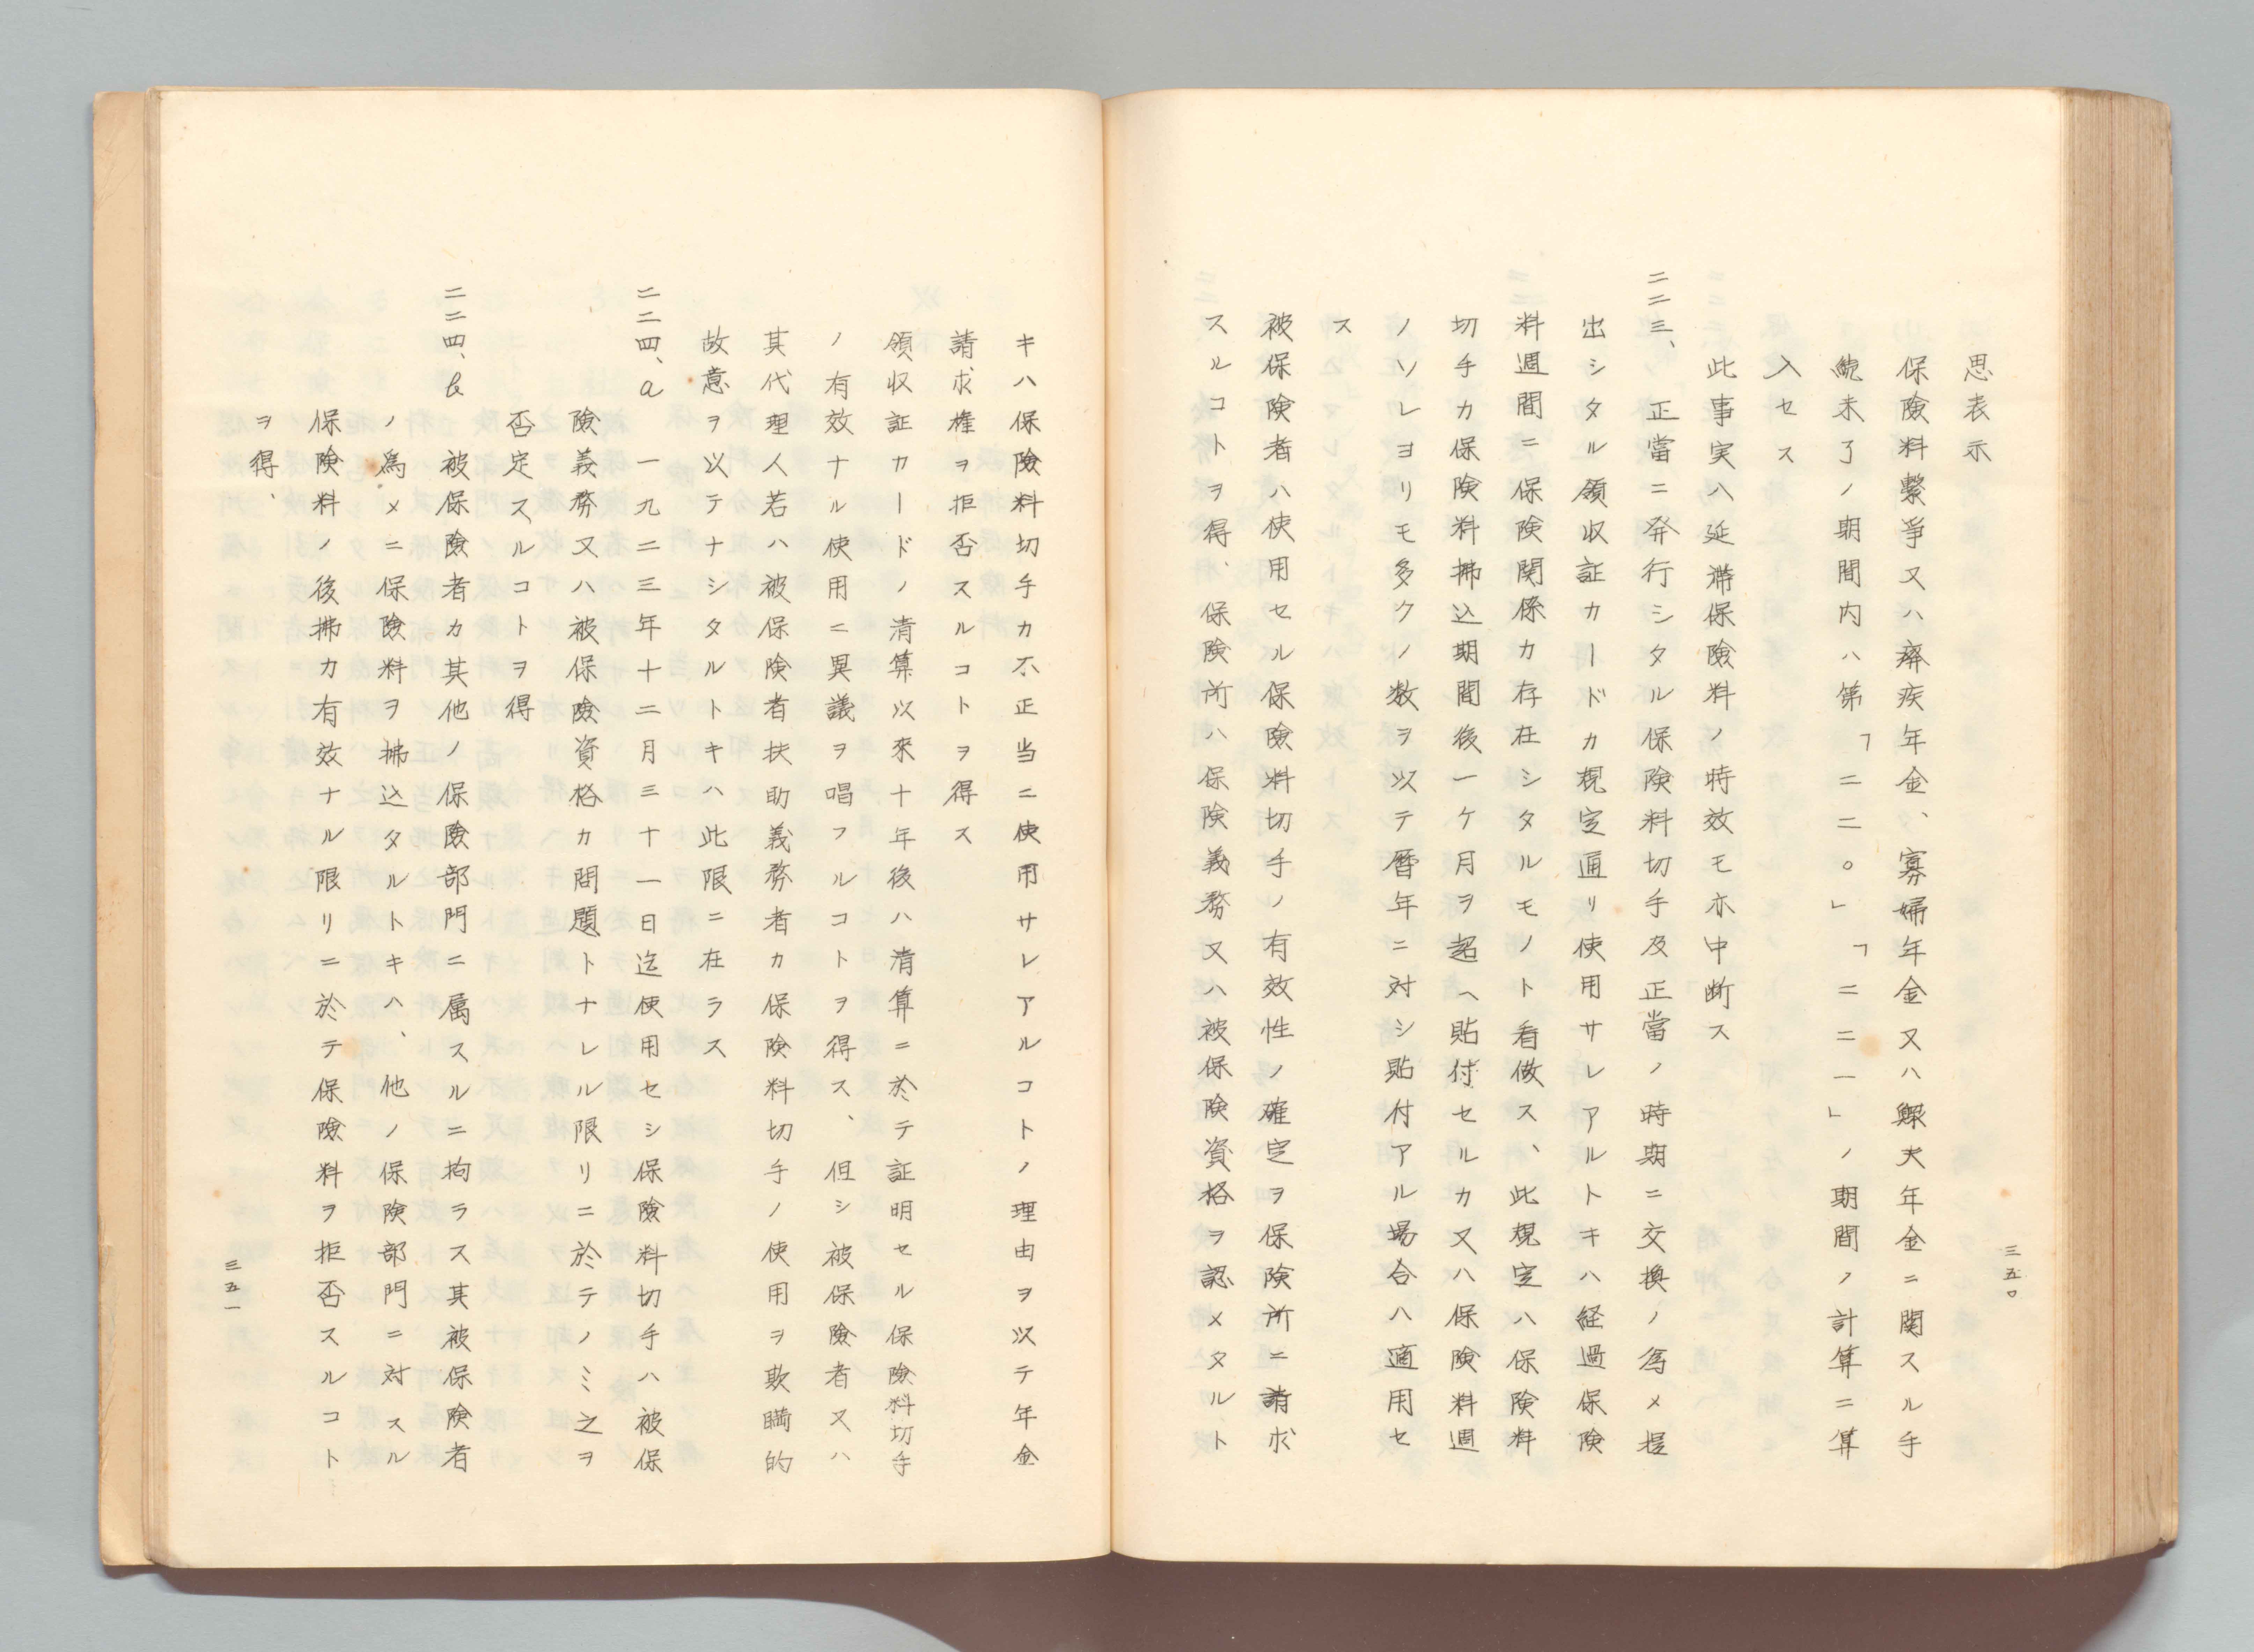 思表示
保険料繋争又ハ癈疾年金、寡婦年金又ハ鰥夫年金ニ関スル手
続未了ノ期間内ハ第「二二〇」「二二一」ノ期間ノ計算ニ算
入セス
此事実ハ延滞保険料ノ時效モ亦中断ス
二二三、正當ニ発行シタル保険料切手及正當ノ時期ニ交換ノ為メ提
出シタル領収証カードカ規定通リ使用サレアルトキハ経過保険
料週間ニ保険関係カ存在シタルモノト看做ス、此規定ハ保険料
切手カ保険料拂込期間後一ケ月ヲ超ヘ貼付セルカ又ハ保険料週
ノソレヨリモ多クノ数ヲ以テ暦年ニ対シ貼付アル場合ハ適用セ
ス
被保険者ハ使用セル保険料切手ノ有效性ノ確定ヲ保険所ニ請求
スルコトヲ得、保険所ハ保険義務又ハ被保険資格ヲ認メタルト
三五〇
キハ保険料切手カ不正当ニ使用サレアルコトノ理由ヲ以テ年金
請求権ヲ拒否スルコトヲ得ス
領収証カードノ清算以來十年後ハ清算ニ於テ証明セル保険料切手
ノ有效ナル使用ニ異議ヲ唱フルコトヲ得ス、但シ被保険者又ハ
其代理人若ハ被保険者扶助義務者カ保険料切手ノ使用ヲ欺瞞的
故意ヲ以テナシタルトキハ此限ニ在ラス
二二四、a 一九二三年十二月三十一日迄使用セシ保険料切手ハ被保
険義務又ハ被保険資格カ問題トナレル限リニ於テノミ之ヲ
否定スルコトヲ得
二二四、b 被保険者カ其他ノ保険部門ニ属スルニ拘ラス其被保険者
ノ為メニ保険料ヲ拂込タルトキハ、他ノ保険部門ニ対スル
保険料ノ後拂カ有效ナル限リニ於テ保険料ヲ拒否スルコト
ヲ得、
三五一